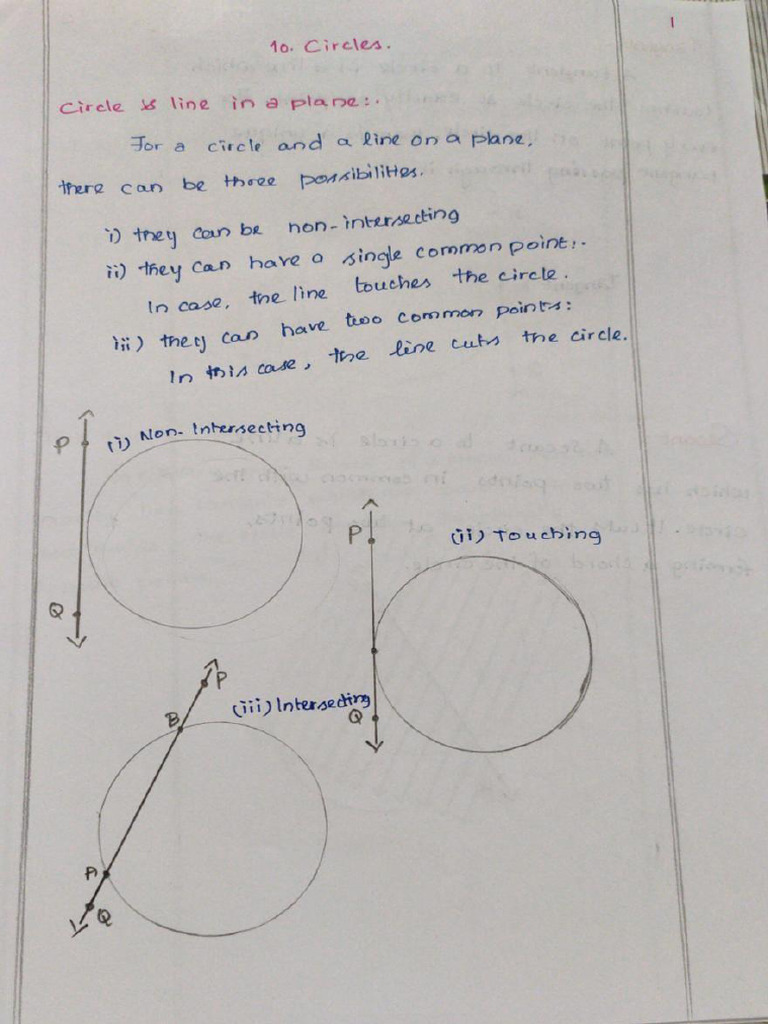 1
10. Circles.
Circle & line in a plane:.
For a circle and a line on a plane,
there can be three possibilities.
i) they can be non-intersecting
ii) they can have a single common point:.
In case, the line touches the circle.
iii) they can have two common points:
In this case, the line cuts the circle.
(i) Non-Intersecting
P
Q
(ii) Touching
P
Q
(iii) Intersecting
P
B
A
Q